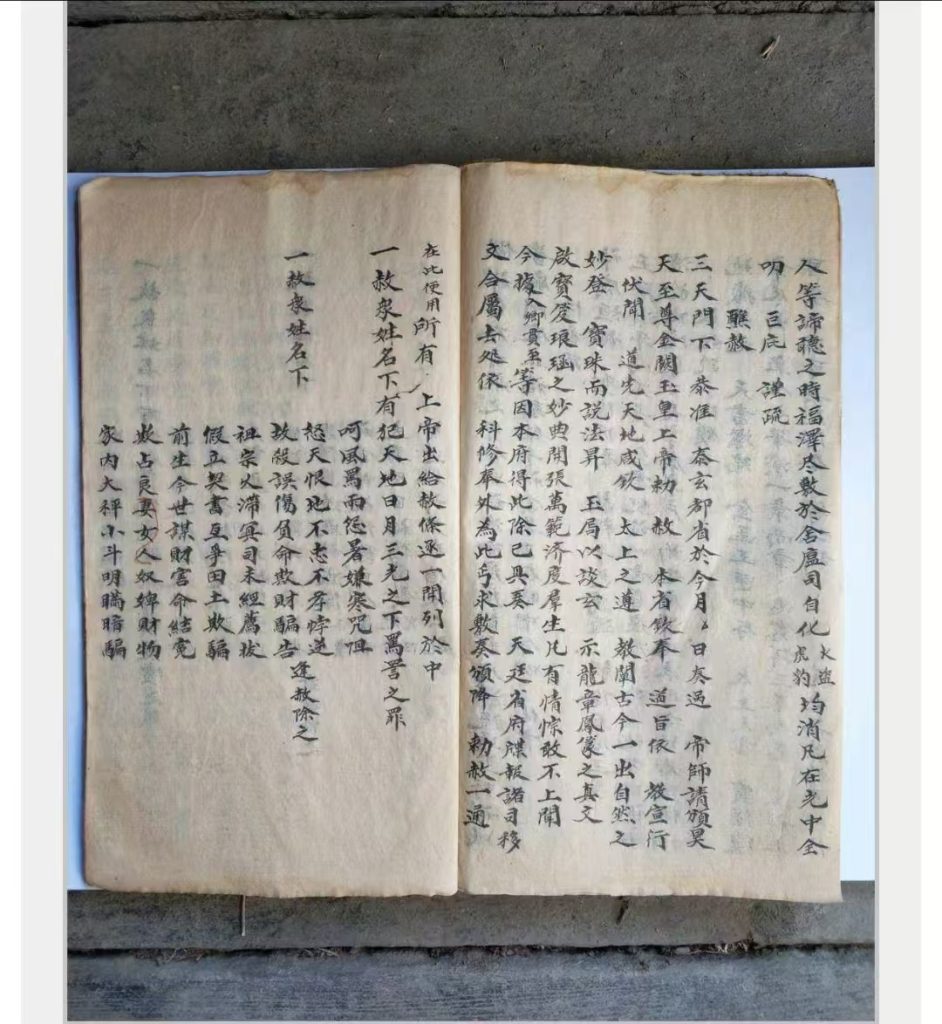 人等諦聽之時福澤尽敷於舍廬司自化火盜虎豹均消凡在光中全
叨巨庇　謹疏
醮赦
三天門下　恭准　泰玄都省於今月〻日奏過　帝師請頒昊
天至尊金闕玉皇上帝勅　赦　本省欽奉　道旨依　教宣行
伏聞　道先天地咸欽　太上之遵　教闡古今一出自然之
妙登　寶珠而說法昇　玉局以談玄　示龍章鳳篆之真文
啟寶笈琅函之妙典開張萬範济度羣生凡有情悰敢不上聞
今據入鄉貫至等因本府得此除已具奏　天廷省府牒報諸司移
文合属去処依　科修奉外為此丐求敷奏頒降　勅赦一通
在此便用所有　上帝出給赦條逐一開列於中
一赦衆姓名下有犯天地日月三光之下罵詈之罪
呵風罵雨怨暑嫌寒咒咀
怒天恨地不忠不孝悖逆
一赦衆姓名下　故殺誤傷負命欺財騙告　逢赦除之
祖宗久滞冥司未經薦拔
假立契書互爭田土欺騙
前生今世謀財害命結冤
欺占良妻女人奴婢財物
家内大秤小斗明瞞暗騙